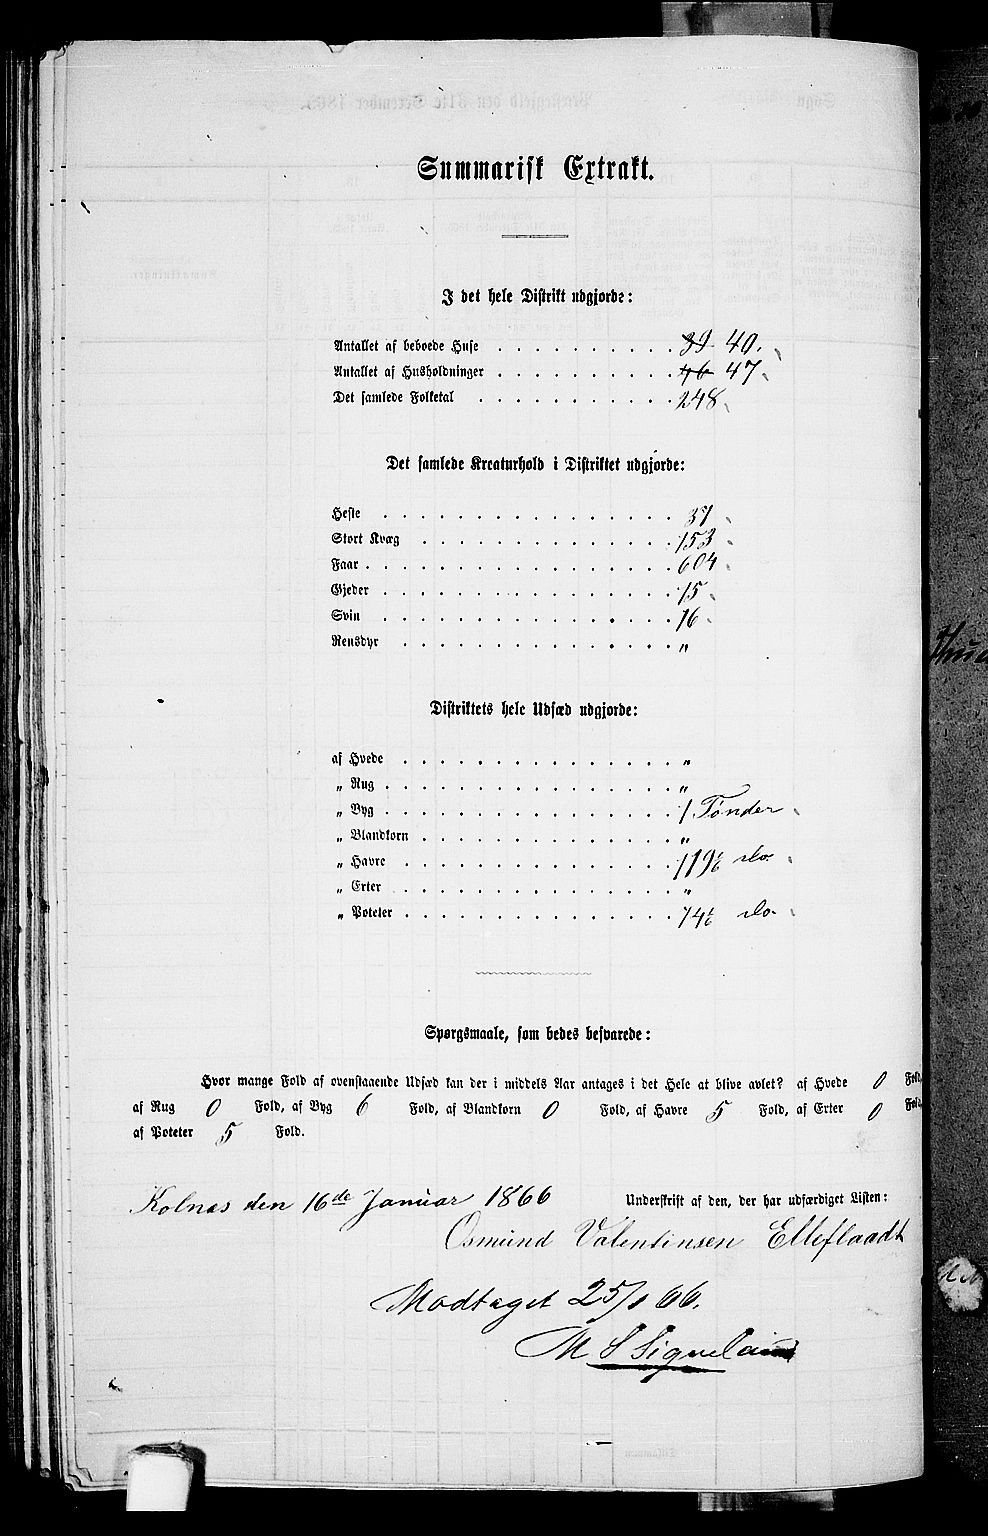 Summarisk Extrakt.
I det hele Distrikt udgjorde:
Antallet af beboede Huse . . . . . . . . 39 40.
Antallet af Husholdninger . . . . . . . . 46 47.
Det samlede Folketal . . . . . . . . . 248.
Det samlede Kreaturhold i Distriktet udgjorde:
Heste . . . . . . . . . . . . . 37
Stort Kvæg . . . . . . . . . . . 153
Faar . . . . . . . . . . . . . . 604
Gjeder . . . . . . . . . . . . . 15
Svin . . . . . . . . . . . . . 16
Rensdyr . . . . . . . . . . . . "
Distriktets hele Udsæd udgjorde:
af Hvede . . . . . . . . . . . . "
„ Rug . . . . . . . . . . . . . "
„ Byg . . . . . . . . . . . . . 1 Tønder
„ Blandkorn . . . . . . . . . . . "
„ Havre . . . . . . . . . . . . 119 do
„ Erter . . . . . . . . . . . . "
„ Poteter . . . . . . . . . . . . 74 do.
Spørgsmaale, som bedes besvarede:
Hvor mange Fold af ovenstaaende Udsæd kan der i middels Aar antages i det Hele at blive avlet? af Hvede 0 Fold,
af Rug 0 Fold, af Byg 6 Fold, af Blandkorn 0 Fold, af Havre 5 Fold, af Erter 0 Fold,
af Poteter 5 Fold.
Kolnes den 16de Januar 1866
Underskrift af den, der har udfærdiget Listen:
Osmund Valentinsen Elleflaadt
Modtaget 25/1 66.
M S Siqveland